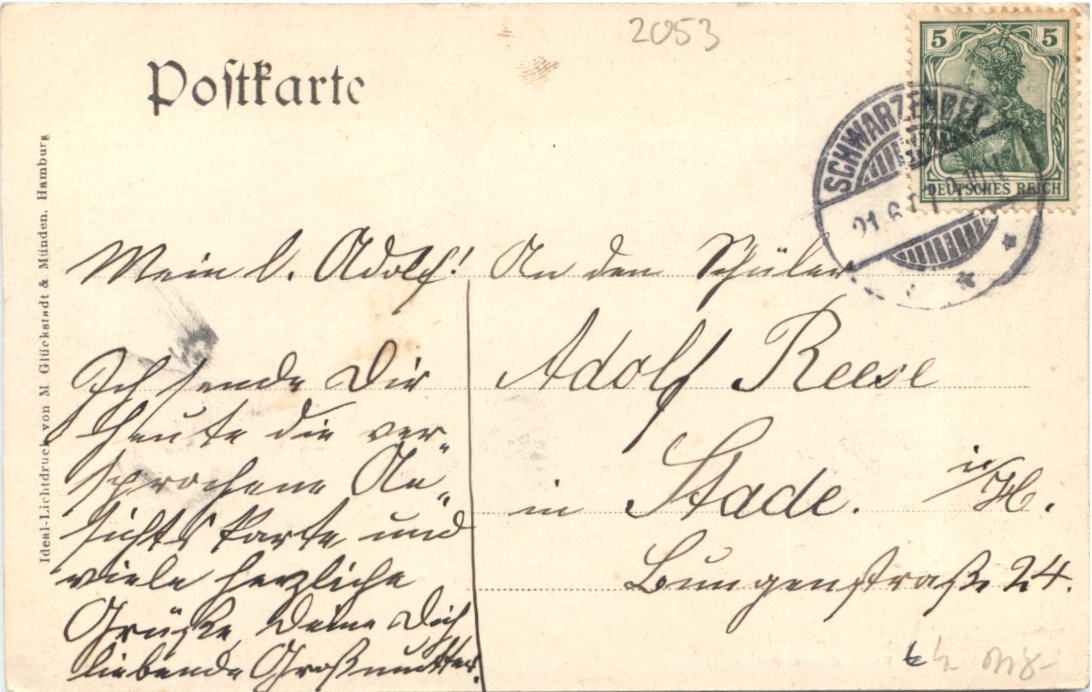 2053
Postkarte
5 5
DEUTSCHES REICH
SCHWARZENBEK
21.6.
Ideal-Lichtdruck von M. Glückstadt & Münden, Hamburg
Mein l. Adolf!
Ich sende Dir
heute die ver-
sprochene An-
sichtskarte und
viele herzliche
Grüße, Deine Dich
liebende Großmutter.
An den Schüler
Adolf Reese
in Stade. i/H.
Bungenstraße 24.